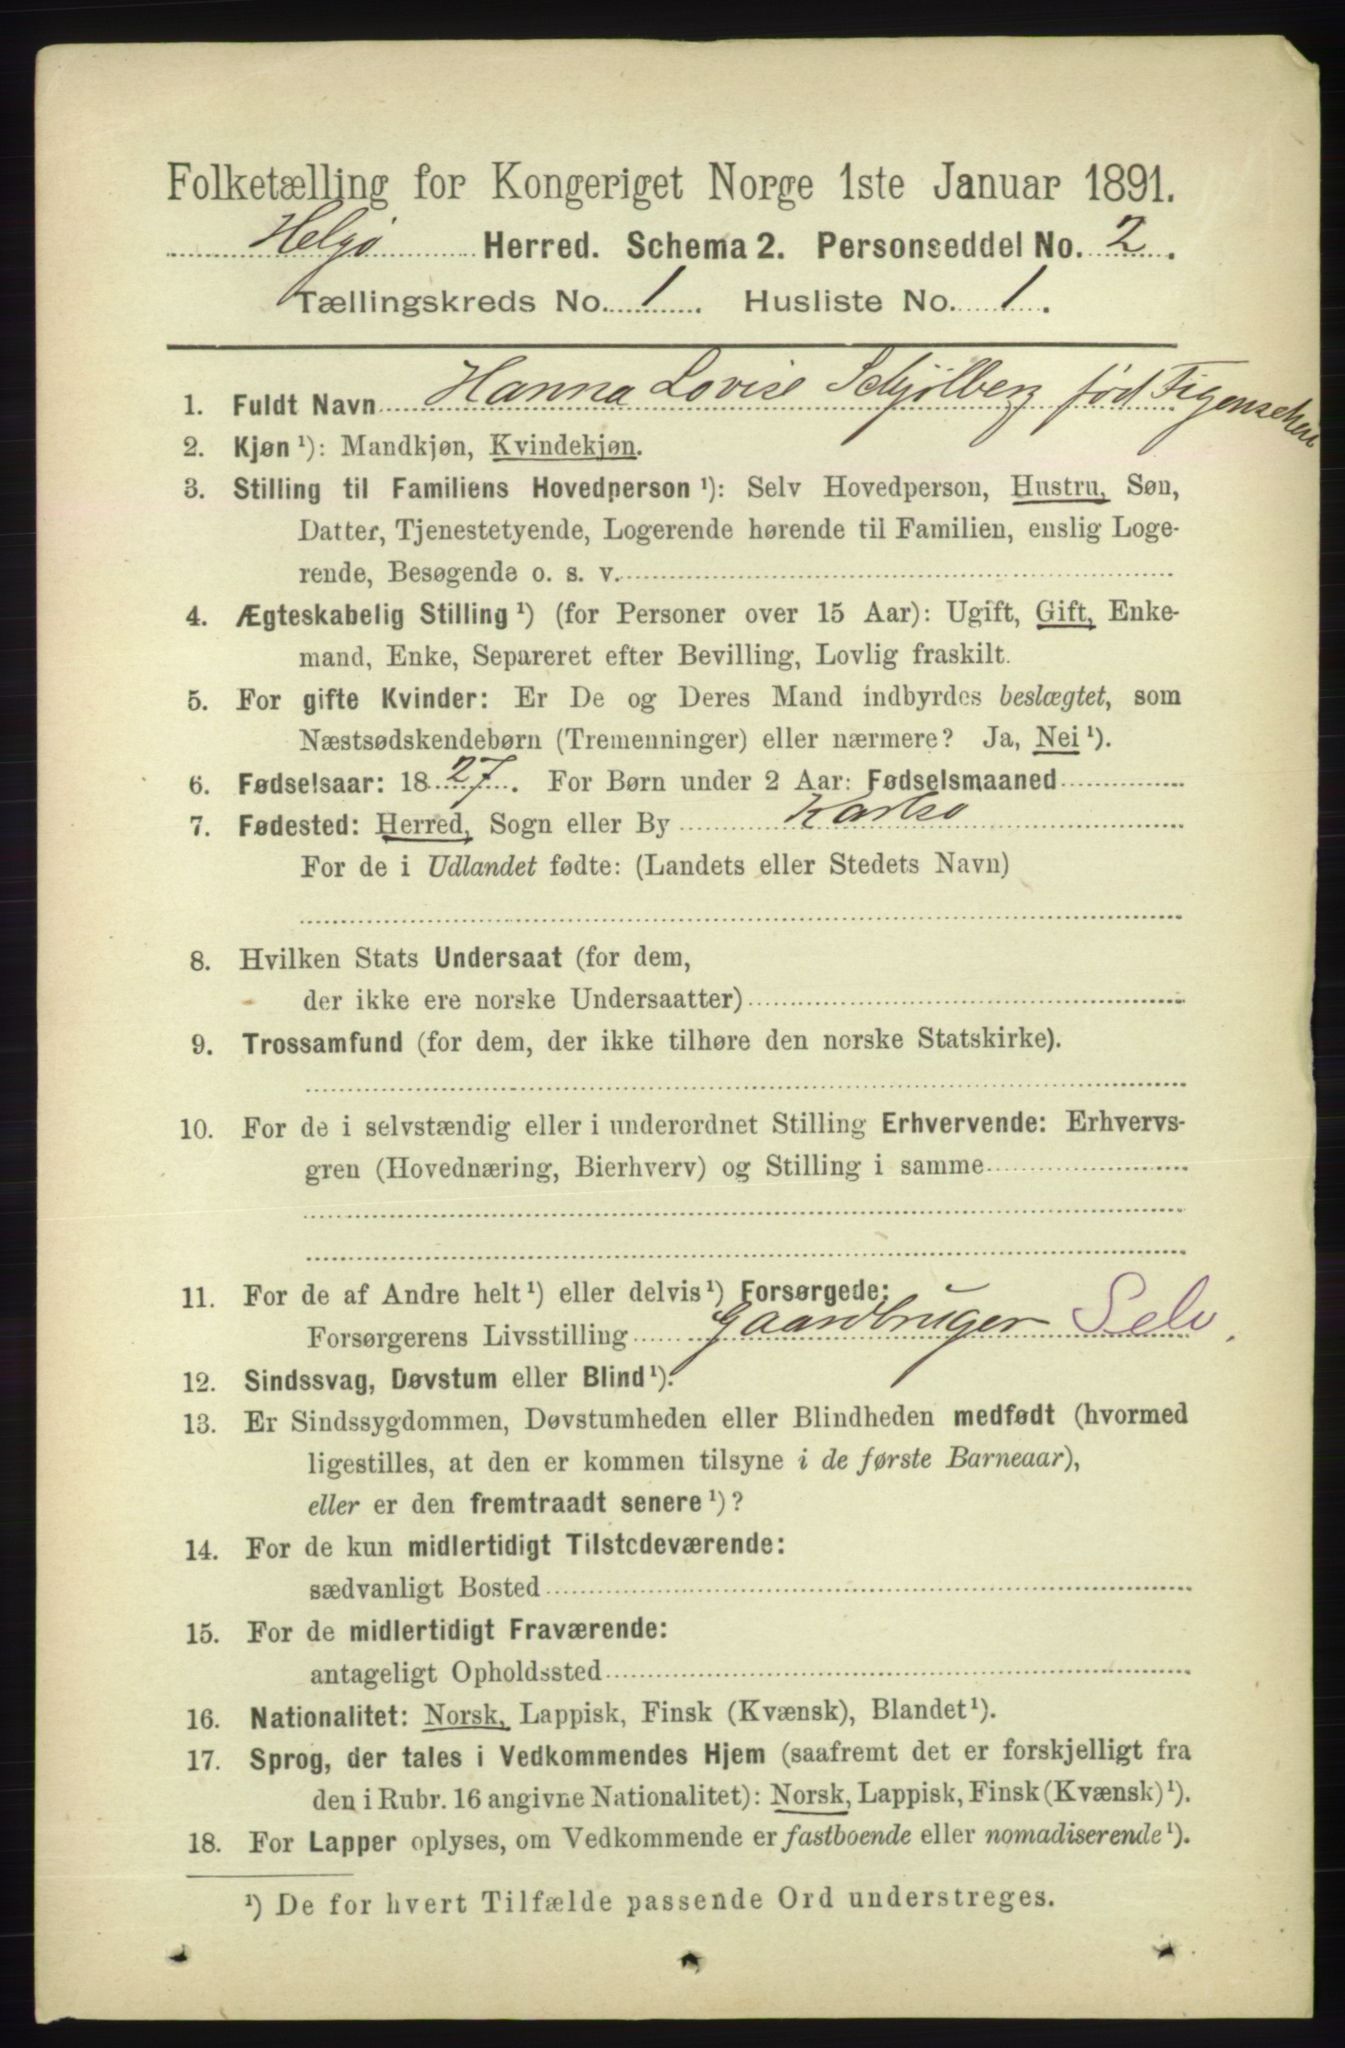 Folketælling for Kongeriget Norge 1ste Januar 1891.
Helgø Herred. Schema 2. Personseddel No. 2.
Tællingskreds No. 1. Husliste No. 1.
1. Fuldt Navn Hanna Lovise Schjølberg fød Figenschou
2. Kjøn ¹): Mandkjøn, Kvindekjøn.
3. Stilling til Familiens Hovedperson ¹): Selv Hovedperson, Hustru, Søn,
Datter, Tjenestetyende, Logerende hørende til Familien, enslig Loge-
rende, Besøgende o. s. v.
4. Ægteskabelig Stilling ¹) (for Personer over 15 Aar): Ugift, Gift, Enke-
mand, Enke, Separeret efter Bevilling, Lovlig fraskilt.
5. For gifte Kvinder: Er De og Deres Mand indbyrdes beslægtet, som
Næstsødskendebørn (Tremenninger) eller nærmere? Ja, Nei ¹).
6. Fødselsaar: 1827. For Børn under 2 Aar: Fødselsmaaned
7. Fødested: Herred, Sogn eller By Karlsø
For de i Udlandet fødte: (Landets eller Stedets Navn)
8. Hvilken Stats Undersaat (for dem,
der ikke ere norske Undersaatter)
9. Trossamfund (for dem, der ikke tilhøre den norske Statskirke).
10. For de i selvstændig eller i underordnet Stilling Erhvervende: Erhvervs-
gren (Hovednæring, Bierhverv) og Stilling i samme
11. For de af Andre helt ¹) eller delvis ¹) Forsørgede:
Forsørgerens Livsstilling Gaardbruger Selv.
12. Sindssvag, Døvstum eller Blind ¹).
13. Er Sindssygdommen, Døvstumheden eller Blindheden medfødt (hvormed
ligestilles, at den er kommen tilsyne i de første Barneaar),
eller er den fremtraadt senere ¹)?
14. For de kun midlertidigt Tilstedeværende:
sædvanligt Bosted
15. For de midlertidigt Fraværende:
antageligt Opholdssted
16. Nationalitet: Norsk, Lappisk, Finsk (Kvænsk), Blandet ¹).
17. Sprog, der tales i Vedkommendes Hjem (saafremt det er forskjelligt fra
den i Rubr. 16 angivne Nationalitet): Norsk, Lappisk, Finsk (Kvænsk) ¹).
18. For Lapper oplyses, om Vedkommende er fastboende eller nomadiserende ¹).
¹) De for hvert Tilfælde passende Ord understreges.